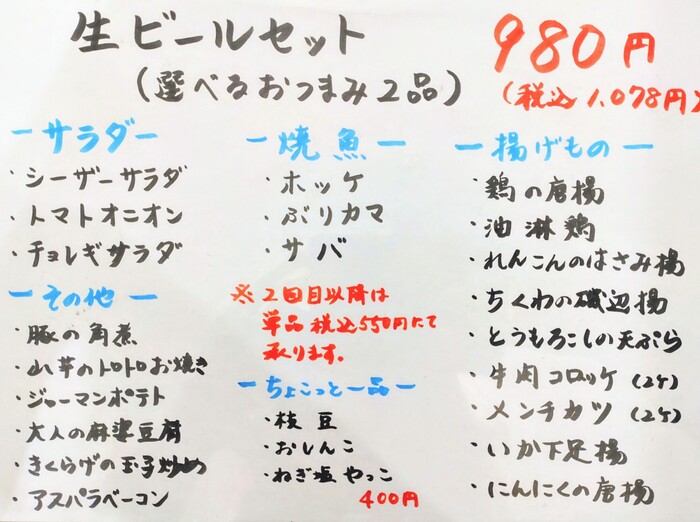 生ビールセット
980円
(選べるおつまみ2品)
(税込1,078円)
ーサラダー
・シーザーサラダ
・トマトオニオン
・チョレギサラダ
ーその他ー
・豚の角煮
・山芋のトロトロお焼き
・ジャーマンポテト
・大人の麻婆豆腐
・きくらげの玉子炒め
・アスパラベーコン
ー焼魚ー
・ホッケ
・ぶりカマ
・サバ
※2回目以降は
単品税込550円にて
承ります。
ーちょこっと一品ー
・枝豆
・おしんこ
・ねぎ塩やっこ
400円
ー揚げものー
・鶏の唐揚
・油淋鶏
・れんこんのはさみ揚
・ちくわの磯辺揚
・とうもろこしの天ぷら
・牛肉コロッケ(2ケ)
・メンチカツ(2ケ)
・いか下足揚
・にんにくの唐揚